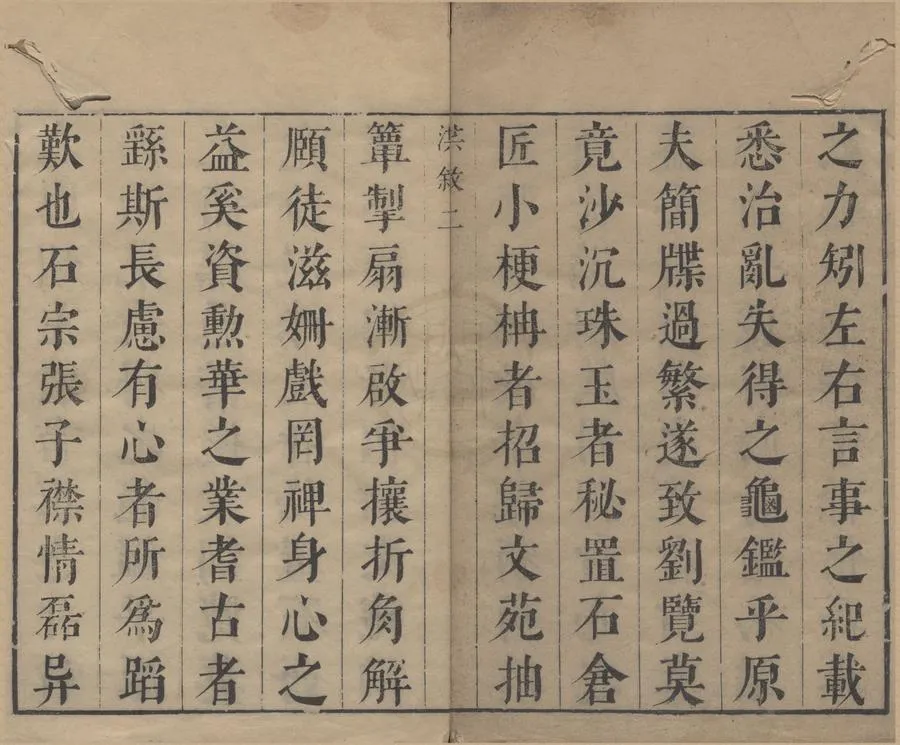 之力矧左右言事之紀載
悉治亂失得之龜鑑乎原
夫簡牒過繁遂致劉覽莫
竟沙沉珠玉者秘置石倉
匠小梗枏者招歸文苑抽
洪敘 二
簞掣扇漸啟爭攘折角解
頤徒滋姍戲罔裨身心之
益奚資勲華之業耆古者
繇斯長慮有心者所為蹈
歎也石宗張子襟情磊异